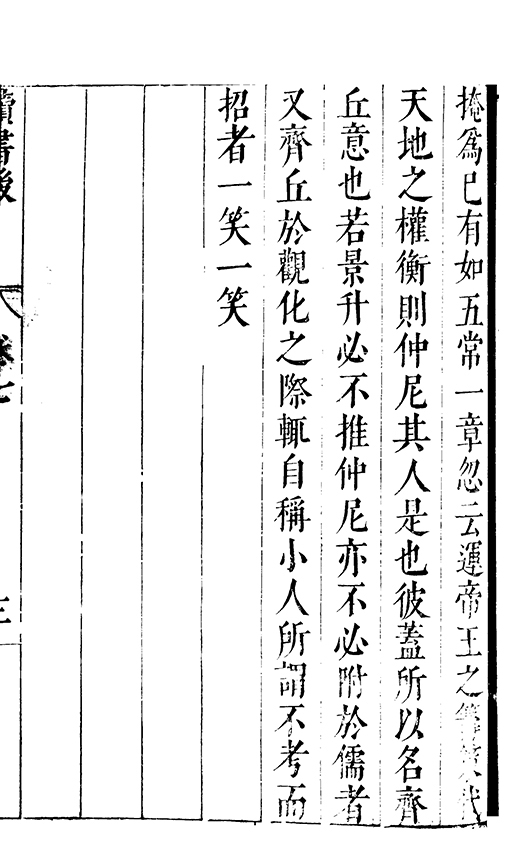 掩爲巳有如五常一章忽云運帝王之籌策代
天地之權衡則仲尼其人是也彼蓋所以名齊
丘意也若景升必不推仲尼亦不必附於儒者
又齊丘於觀化之際輒自稱小人所謂不考而
招者一笑一笑
讀書後 卷七 三